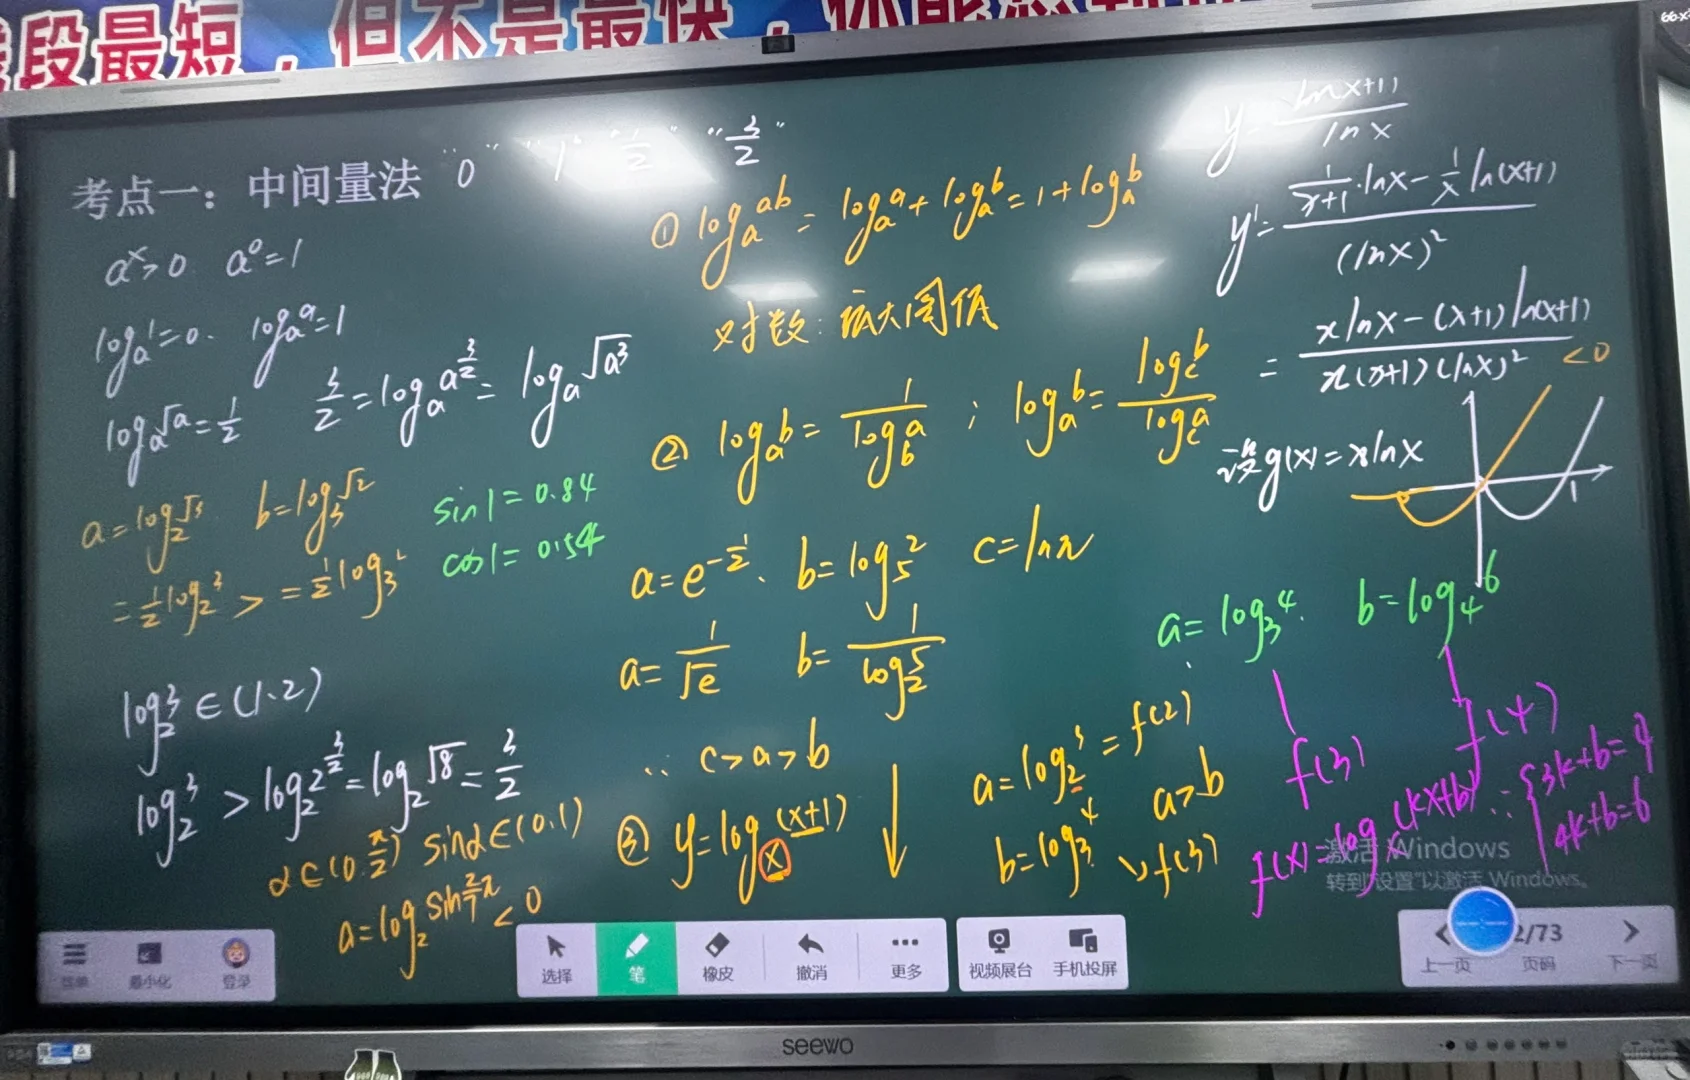 段最短，但不是最快，你能
考点一：中间量法 "0" "1" "1/2" "3/2"
aˣ>0 a⁰=1
logₐ1=0. logₐa=1
logₐ√a=1/2 3/2=logₐa^(3/2)=logₐ√a³
a=log₂√3 b=log₃√2
=1/2log₂3 > =1/2log₃2
sin1=0.84
cos1=0.54
log₂3∈(1.2)
log₂3>log₂2^(3/2)=log₂√8=3/2
α∈(0.π/2) sinα∈(0,1)
a=log₂sin2/7π<0
① logₐab=logₐa+logₐb=1+logₐb
对数：底大图低
② logₐb=1/log_b a ; logₐb=log_c b/log_c a
a=e^(-1/2). b=log₅2 c=lnπ
a=1/√e b=1/log₂5
∵ c>a>b
③ y=logₓ(x+1)
a=log₂3=f(2)
a>b
b=log₃4 f(3)
y=ln(x+1)/lnx
y'=(1/(x+1)·lnx-1/x ln(x+1))/(lnx)²
=(xlnx-(x+1)ln(x+1))/(x(x+1)(lnx)²) <0
设g(x)=xlnx
1
a=log₃4. b=log₄6
f(3) f(4)
f(x)=logₓ(kx+b) ∵ {3k+b=4
4k+b=6
激活 Windows
转到"设置"以激活 Windows。
菜单 最小化 登录
选择 笔 橡皮 撤消 更多
视频展台 手机投屏
2/73
上一页 页码 下一页
seewo